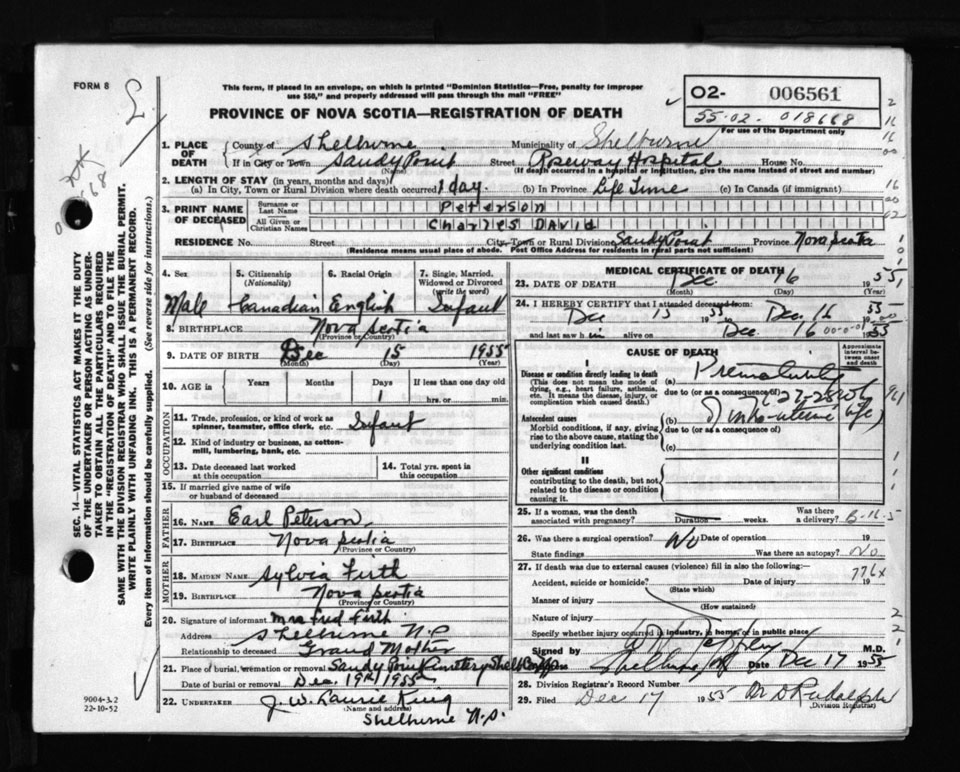 FORM 8
This form, if placed in an envelope, on which is printed "Dominion Statistics—Free, penalty for improper
use $50," and properly addressed will pass through the mail "FREE"
PROVINCE OF NOVA SCOTIA—REGISTRATION OF DEATH
02- 006561
55-02- 018668
For use of the Department only
1. PLACE OF DEATH County of Shelburne Municipality of Shelburne
If in City or Town Sandy Point Street Roseway Hospital House No.
(Name) (If death occurred in a hospital or institution, give the name instead of street and number)
2. LENGTH OF STAY (in years, months and days)
(a) In City, Town or Rural Division where death occurred 1 day. (b) In Province Life Time (c) In Canada (if immigrant)
3. PRINT NAME OF DECEASED
Surname or Last Name Peterson
All Given or Christian Names Charles David
RESIDENCE No. Street City, Town or Rural Division Sandy Point Province Nova Scotia
(Residence means usual place of abode. Post Office Address for residents in rural parts not sufficient)
4. Sex Male
5. Citizenship (Nationality) Canadian
6. Racial Origin English
7. Single, Married, Widowed or Divorced (write the word) Infant
8. BIRTHPLACE Nova Scotia
(Province or Country)
9. DATE OF BIRTH Dec 15 1955
(Month) (Day) (Year)
10. AGE in Years Months Days 1 If less than one day old hrs. or min.
OCCUPATION
11. Trade, profession, or kind of work as spinner, teamster, office clerk, etc. Infant
12. Kind of industry or business, as cotton-mill, lumbering, bank, etc.
13. Date deceased last worked at this occupation
14. Total yrs. spent in this occupation
15. If married give name of wife or husband of deceased
FATHER
16. NAME Earl Peterson
17. BIRTHPLACE Nova Scotia
(Province or Country)
MOTHER
18. MAIDEN NAME Sylvia Firth
19. BIRTHPLACE Nova Scotia
(Province or Country)
20. Signature of informant Mrs Fred Firth
Address Shelburne N.S
Relationship to deceased Grand Mother
21. Place of burial, cremation or removal Sandy Point Cemetery
Date of burial or removal Dec. 19th 1955
22. UNDERTAKER J. W. Laurie King
(Name and address)
Shelburne N.S.
MEDICAL CERTIFICATE OF DEATH
23. DATE OF DEATH Dec. 16 1955
(Month) (Day)
24. I HEREBY CERTIFY that I attended deceased from:
Dec 15 1955 to Dec. 16 1955
and last saw him alive on Dec. 16 1955
CAUSE OF DEATH
Approximate interval between onset and death
I
Disease or condition directly leading to death
(This does not mean the mode of dying, e.g., heart failure, asthenia, etc. It means the disease, injury, or complication which caused death.)
(a) Prematurity
due to (or as a consequence of)
Antecedent causes
Morbid conditions, if any, giving rise to the above cause, stating the underlying condition last.
(b) (27-28 wk of intra-uterine life)
due to (or as a consequence of)
(c)
II
Other significant conditions
contributing to the death, but not related to the disease or condition causing it.
25. If a woman, was the death associated with pregnancy? Duration weeks. Was there a delivery?
26. Was there a surgical operation? No Date of operation 19
State findings Was there an autopsy? No
27. If death was due to external causes (violence) fill in also the following:—
776x
Accident, suicide or homicide? Date of injury 19
(State which)
Manner of injury
(How sustained)
Nature of injury
Specify whether injury occurred in industry, in home, or in public place
Signed by M.D.
Address Shelburne Date Dec 17 1955
28. Division Registrar's Record Number
29. Filed Dec 17 1955 D Rudolph
(Division Registrar)
SEC. 14—VITAL STATISTICS ACT MAKES IT THE DUTY
OF THE UNDERTAKER OR PERSON ACTING AS UNDER-
TAKER TO OBTAIN ALL THE PARTICULARS REQUIRED
IN THE "REGISTRATION OF DEATH" AND TO FILE THE
SAME WITH THE DIVISION REGISTRAR WHO SHALL ISSUE THE BURIAL PERMIT.
WRITE PLAINLY WITH UNFADING INK. THIS IS A PERMANENT RECORD.
Every item of information should be carefully supplied. (See reverse side for instructions.)
9004-3.2
22-10-52